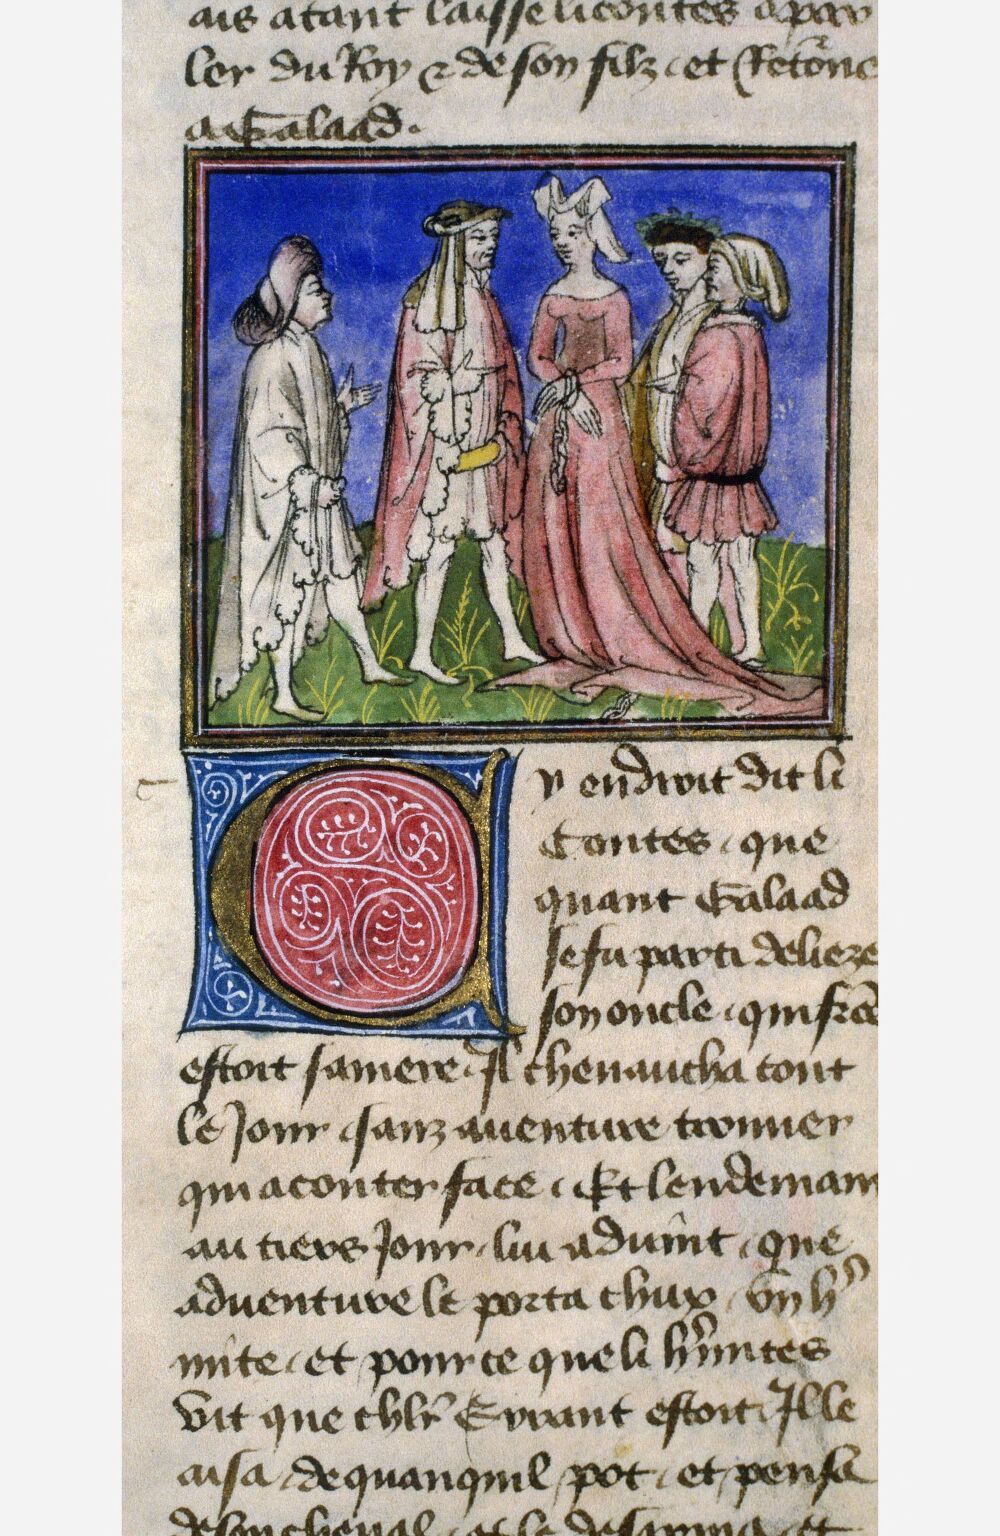 ais atant laisse li contes a par
ler du Roy ⁊ de son filz et Retōne
a Galaad.
Cy endroit dit li
Contes que
quant Galaad
se fu parti de
son oncle qui
estoit sa mere Il cheuaucha tout
le Jour sanz auenture trouuer
qui a conter face Et lendemain
au tiers Jour lui aduint que
aduenture le porta chiex vn h
mite et pour ce que li h̄mites
vit que chlr̄ Errant estoit Il le
aisa de quanquil pot et pensa
de son cheual et le desarma et